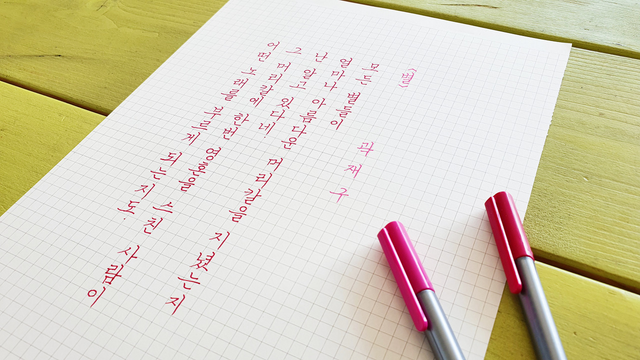 <별>
곽재구
모든 별들이
얼마나 아름다운 머리칼을 지녔는지
난 알고 있다네
그 머리칼에 한번 영혼을 스친 사람이
어떤 노래를 부르게 되는지도.